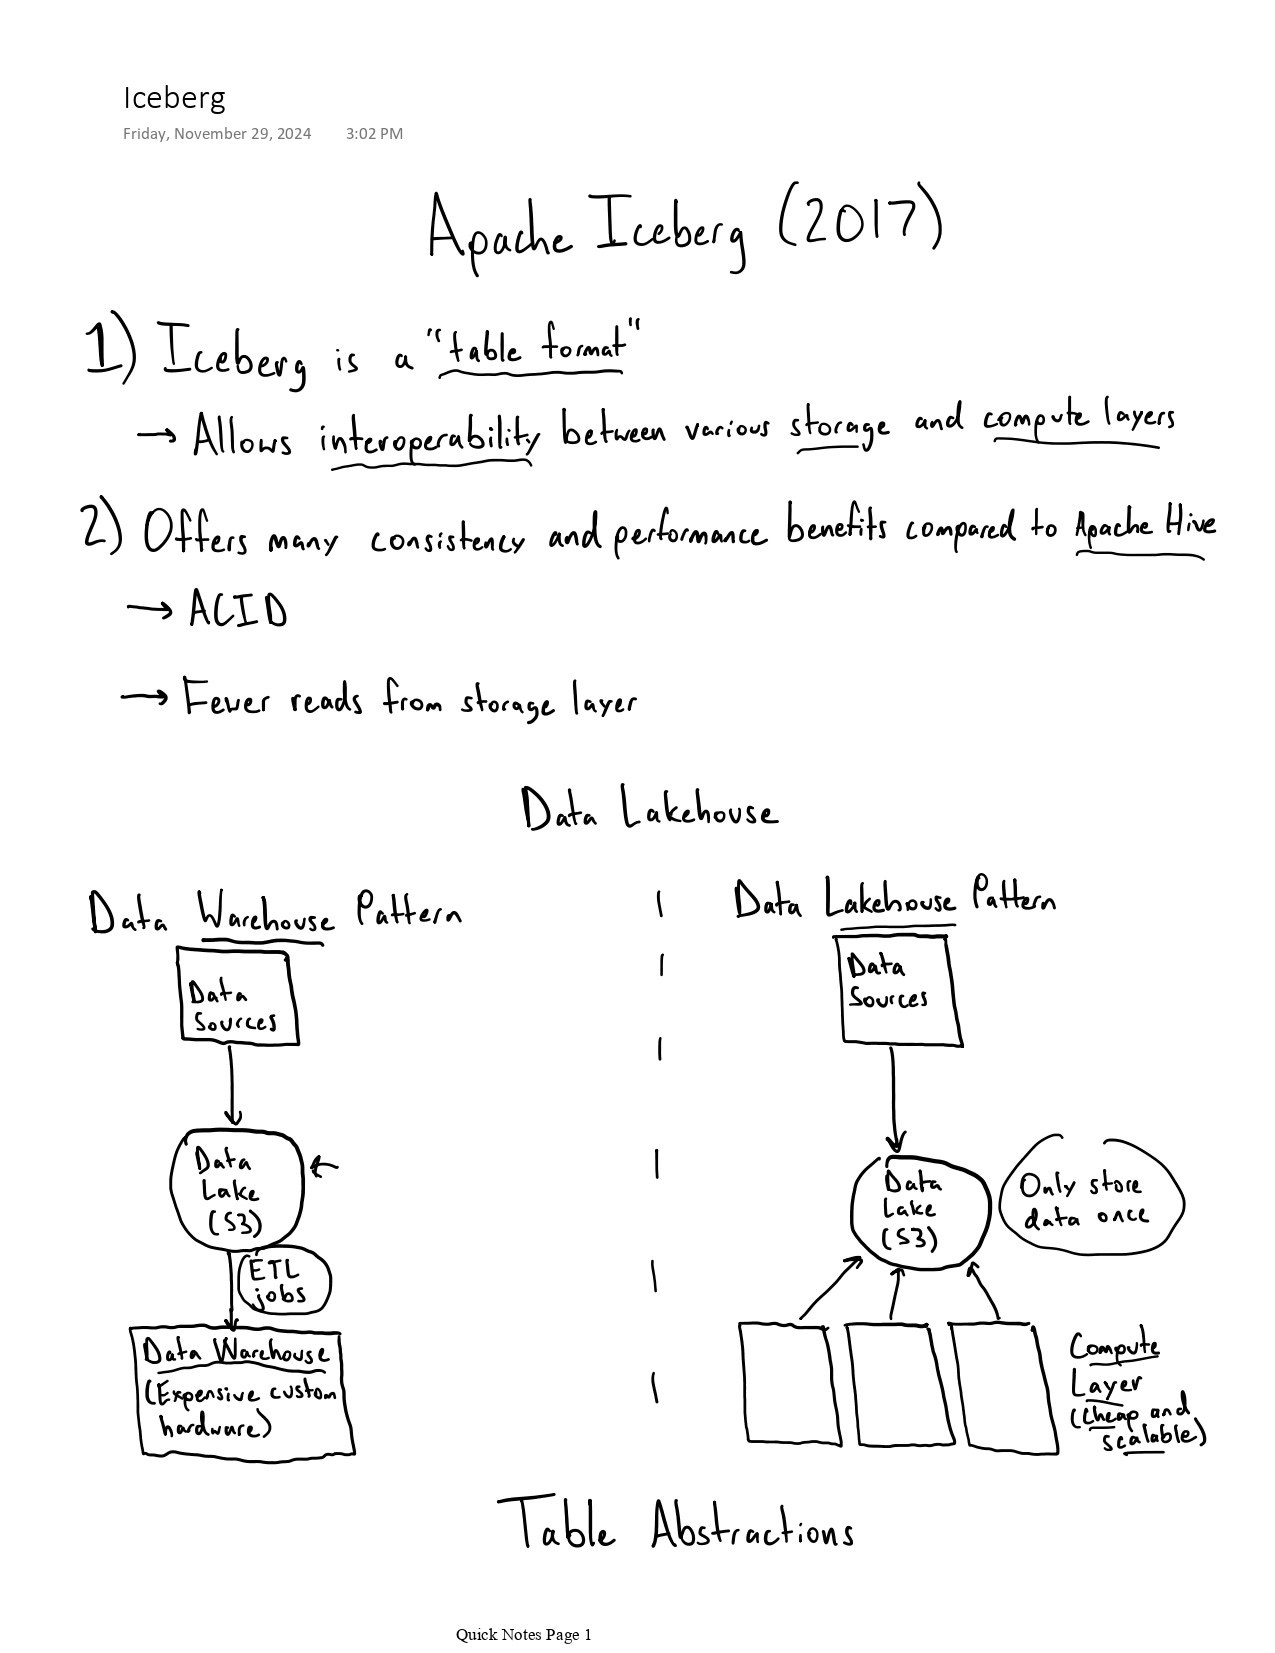 Iceberg
Friday, November 29, 2024 3:02 PM
Apache Iceberg (2017)
1) Iceberg is a "table format"
→ Allows interoperability between various storage and compute layers
2) Offers many consistency and performance benefits compared to Apache Hive
→ ACID
→ Fewer reads from storage layer
Data Lakehouse
Data Warehouse Pattern
Data
Sources
Data
Lake
(S3)
ETL
jobs
Data Warehouse
(Expensive custom
hardware)
Data Lakehouse Pattern
Data
Sources
Data
Lake
(S3)
Only store
data once
Compute
Layer
(cheap and
scalable)
Table Abstractions
Quick Notes Page 1